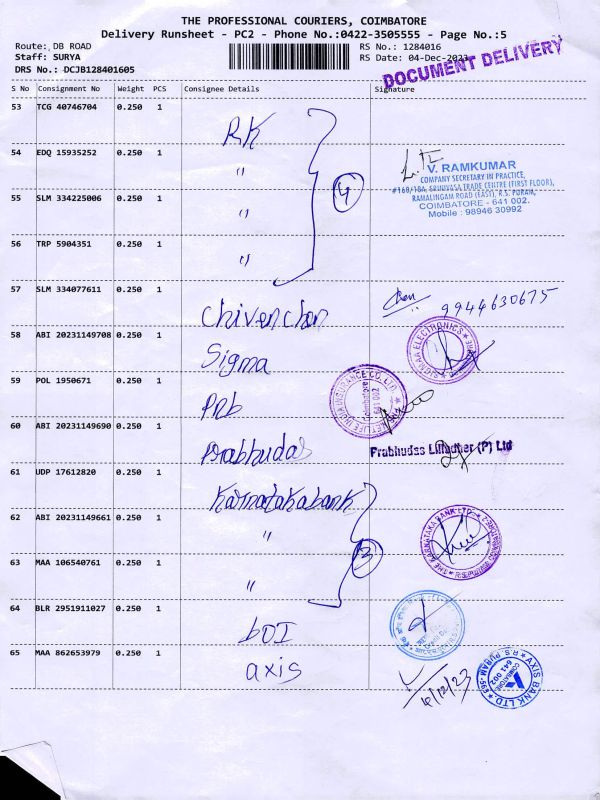 THE PROFESSIONAL COURIERS, COIMBATORE
Delivery Runsheet - PC2 - Phone No.:0422-3505555 - Page No.:5
Route: DB ROAD
Staff: SURYA
DRS No.: DCJB128401605
RS No.: 1284016
RS Date: 04-Dec-2023
DOCUMENT DELIVERY
S No Consignment No Weight PCS Consignee Details Signature
53 TCG 40746704 0.250 1 RK
54 EDQ 15935252 0.250 1 "
55 SLM 334225006 0.250 1 "
56 TRP 5904351 0.250 1 "
4
V. RAMKUMAR
COMPANY SECRETARY IN PRACTICE,
#168/18A, SRINIVASA TRADE CENTRE (FIRST FLOOR),
RAMALINGAM ROAD (EAST), R.S. PURAM,
COIMBATORE - 641 002.
Mobile : 98946 30992
57 SLM 334077611 0.250 1 Chivenchen
9944630675
58 ABI 20231149708 0.250 1 Sigma
SIGMAA ELECTRONICS
59 POL 1950671 0.250 1 Pnb
METLIFE INDIA INSURANCE CO. LTD.
Coimbatore
641 002
60 ABI 20231149690 0.250 1 Prabhudas
Prabhudas Lilladher (P) Ltd
61 UDP 17612820 0.250 1 Karnatakabank
62 ABI 20231149661 0.250 1 "
63 MAA 106540761 0.250 1 "
3
THE KARNATAKA BANK LTD.
64 BLR 2951911027 0.250 1 bOI
65 MAA 862653979 0.250 1 axis
4/12/23
AXIS BANK LTD
R.S. PURAM
COIMBATORE
641 002